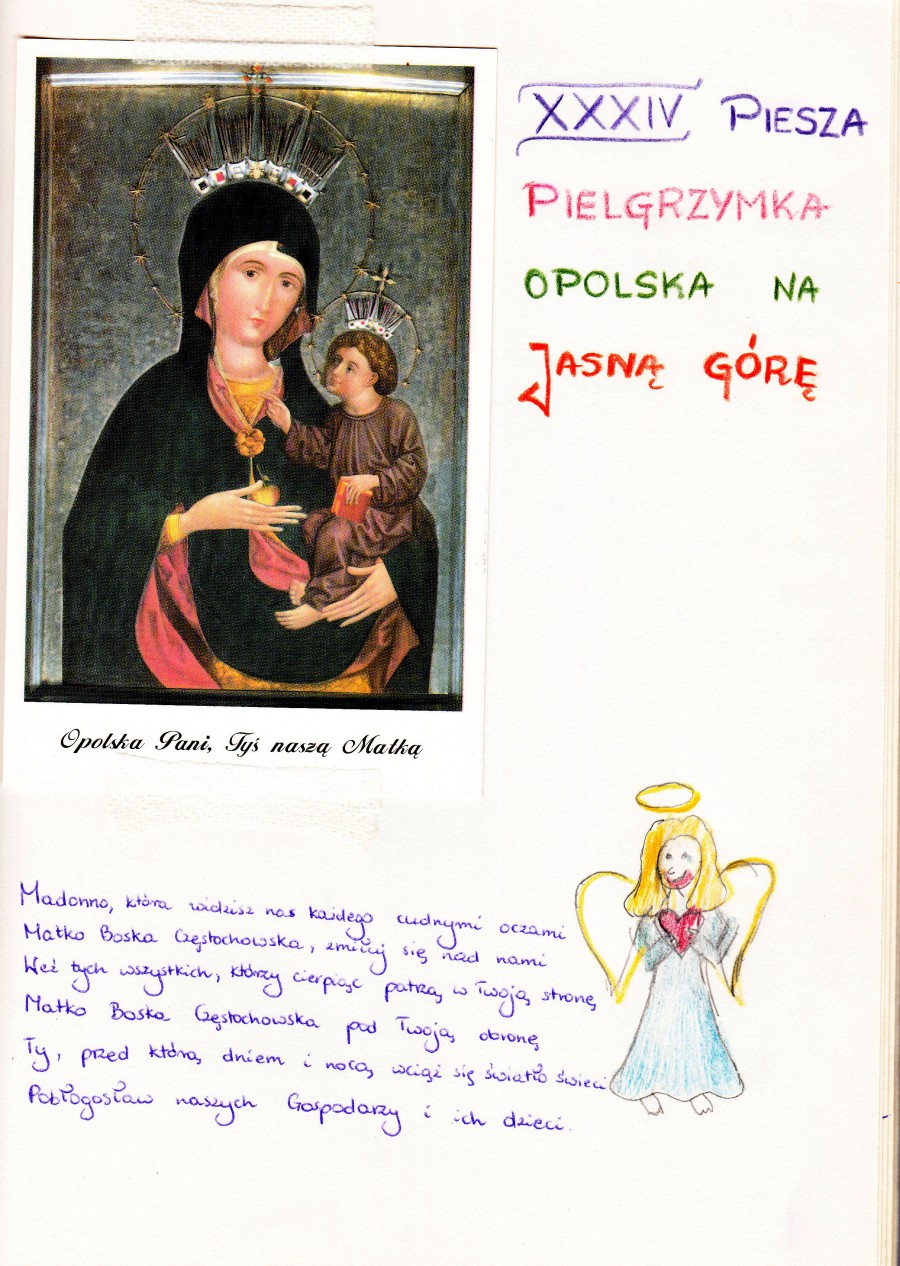 XXXIV PIESZA
PIELGRZYMKA
OPOLSKA NA
JASNĄ GÓRĘ
Opolska Pani, Tyś naszą Matką
Madonno, która widzisz nas każdego cudnymi oczami
Matko Boska Częstochowska, zmiłuj się nad nami
Weź tych wszystkich, którzy cierpiąc patrzą w Twoją stronę,
Matko Boska Częstochowska pod Twoją obronę
Ty, przed którą dniem i nocą wciąż się światło świeci
Pobłogosław naszych Gospodarzy i ich dzieci.